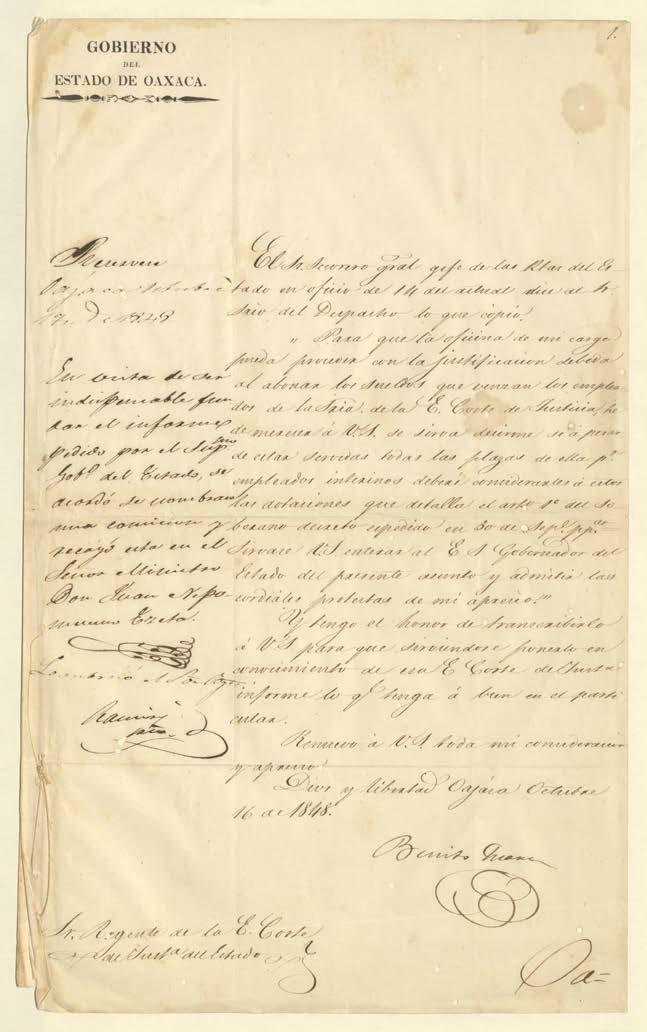 1.
GOBIERNO
DEL
ESTADO DE OAXACA.
Oajaca Octubre
17,, de 1848
En vista de ser
indispensable fun
dar el informe
pedido por el Supmo
Gobo del Estado, se
acordó se nombrara
una comicion y
recayó esta en el
Señor Ministro
Don Juan Nepo-
muceno Ezeta.
Lo
Ramirez
El Sr. Tesorero Gral. gefe de las Rtas del Es-
tado en oficio de 14 del actual dice al S-
srio del Despacho lo que copio.
„ Para que la oficina de mi cargo
pueda proceder con la justificacion debida
al abonar los sueldos que venzan los emplea-
dos de la Sria. de la E. Corte de Justicia, he
de merecer á V.S. se sirva decirme si á pesar
de estar servidas todas las plazas de ella pr.
empleados interinos deberé considerarles á estos
las dotaciones que detalla el arto 1º del So-
berano decreto espedido en 30 de Sepe. ppdo.
Sirvase V.S. enterar al E S Gobernador del
Estado del presente asunto y admitir las
cordiales protestas de mi aprecio."
Y tengo el honor de transcribirlo
á V.S. para que sirviendose ponerlo en
conocimiento de esa E Corte de Justa.
informe lo q. tenga á bien en el parti
cular.
Renuevo á V.S. toda mi consideracion
y aprecio.
Dios y libertad Oajaca Octubre
16 de 1848.
Benito Juarez
Sr. Regente de la E. Corte
de Justa del Estado
Oa=